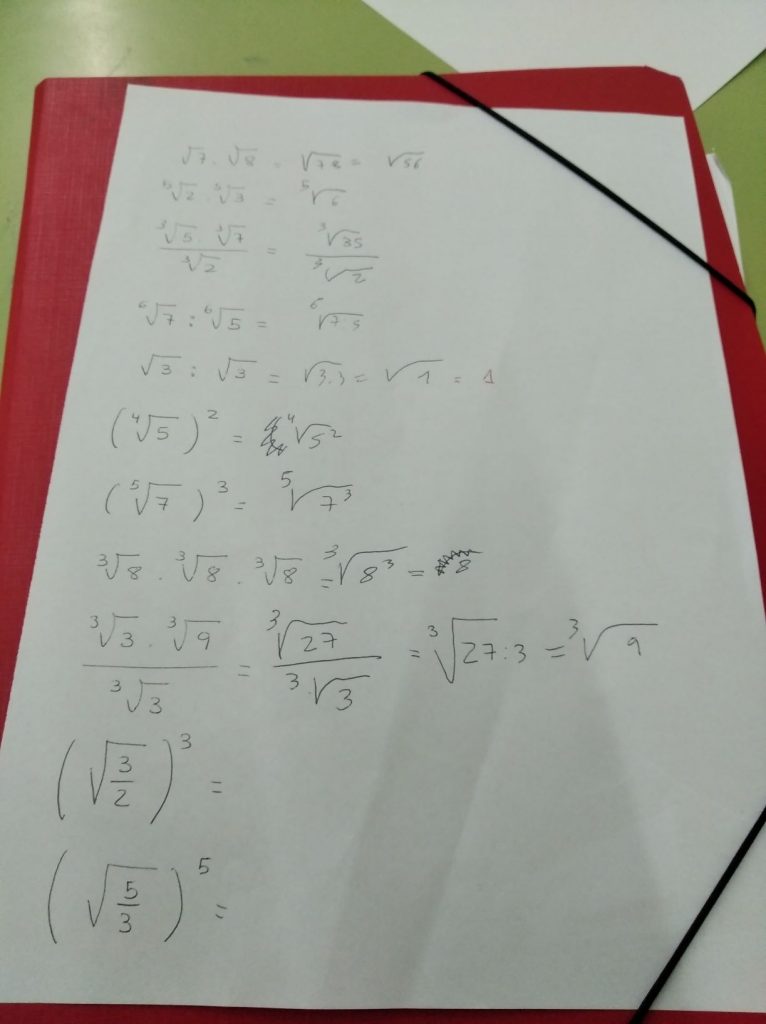 √7 . √8 = √7 8 = √56
⁵√2 . ⁵√3 = ⁵√6
(³√5 . ³√7)/(³√2) = (³√35)/(³√2)
⁶√7 : ⁶√5 = ⁶√7:5
√3 : √3 = √3:3 = √1 = 1
(⁴√5)² = ⁴√5²
(⁵√7)³ = ⁵√7³
³√8 . ³√8 . ³√8 = ³√8³ = 8
(³√3 . ³√9)/(³√3) = (³√27)/(³√3) = ³√27:3 = ³√9
(√(3/2))³ =
(√(5/3))⁵ =